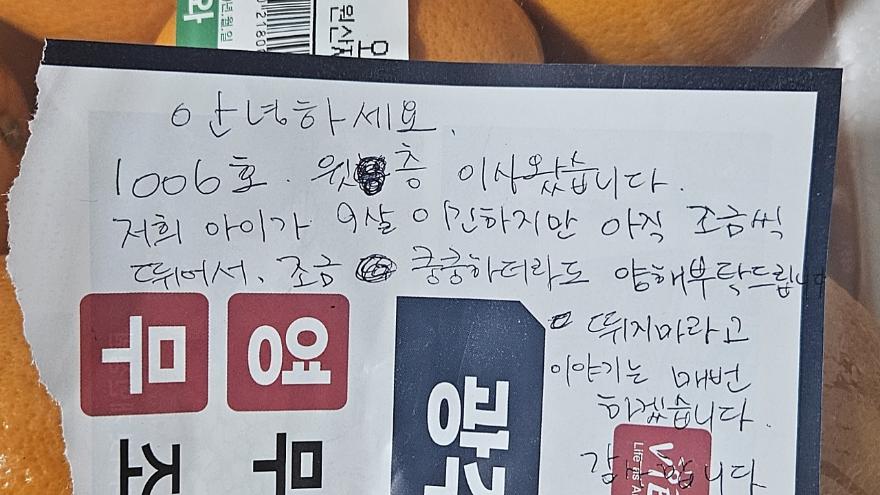 원산지
안녕하세요.
1006호. 윗층 이사왔습니다.
저희 아이가 9살 이긴하지만 아직 조금씩
뛰어서. 조금 쿵쿵하더라도 양해부탁드립니다
뛰지마라고
이야기는 매번
하겠습니다.
감사합니다
무
영
조
무
광